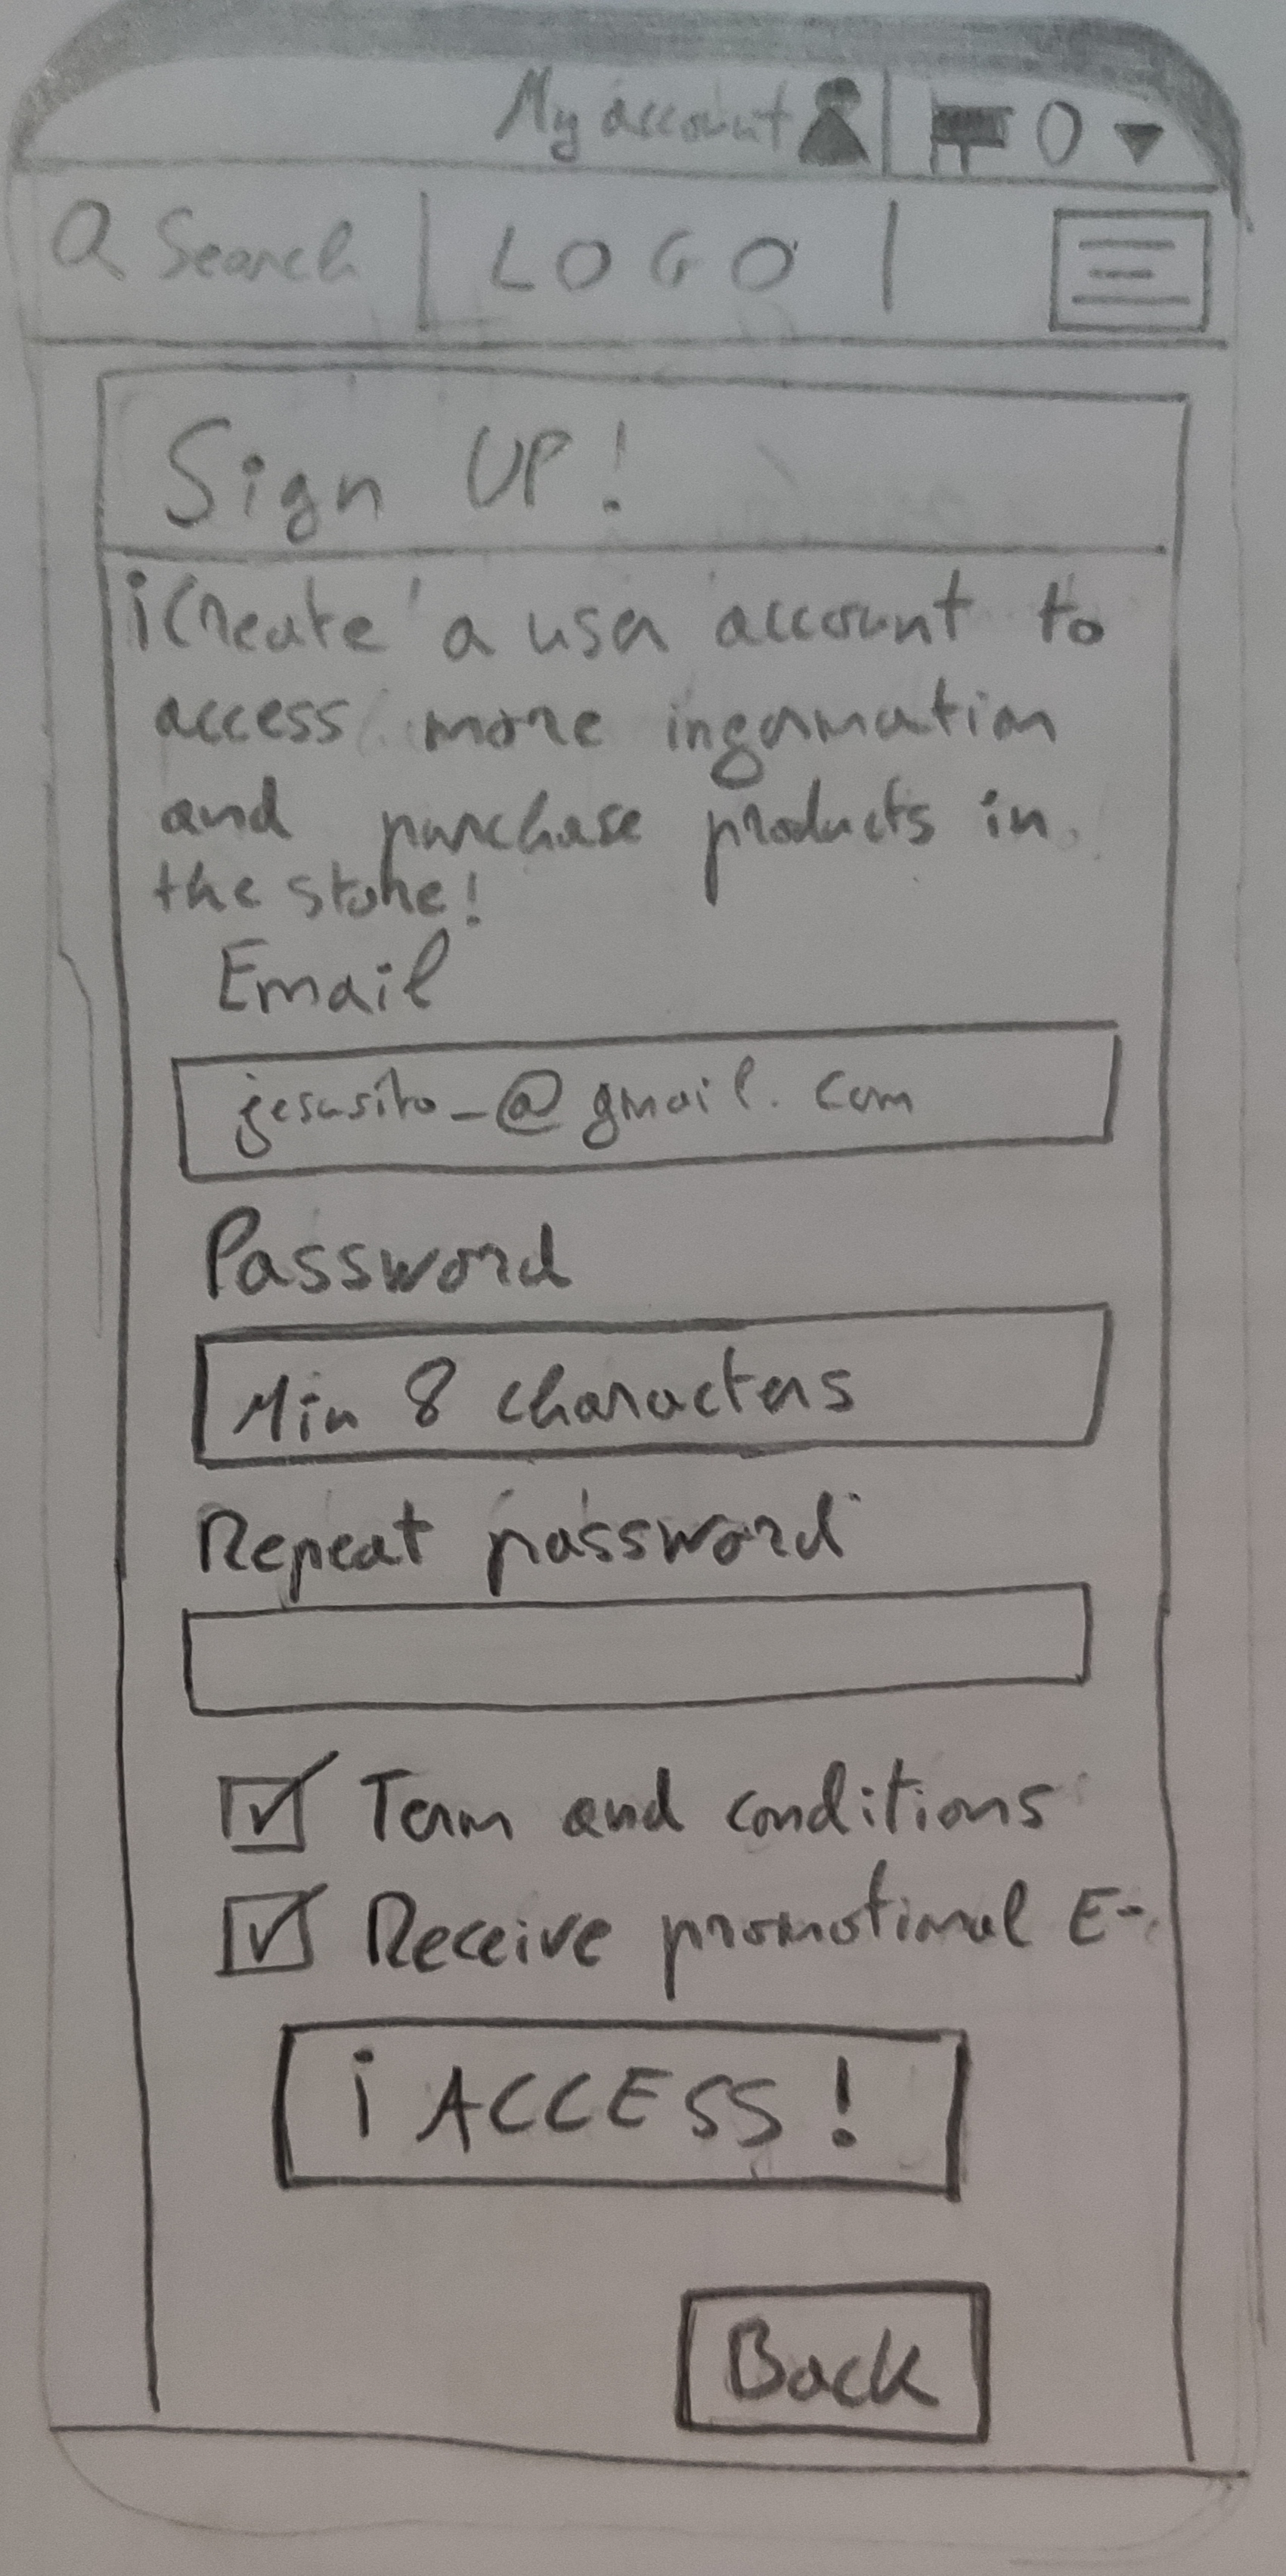 My account 0
Search LOGO
Sign UP!
¡Create a user account to
access more ingormation
and purchase products in
the store!
Email
jesusito_@gmail.com
Password
Min 8 characters
Repeat password
Term and conditions
Receive promotional E-
¡ACCESS!
Back